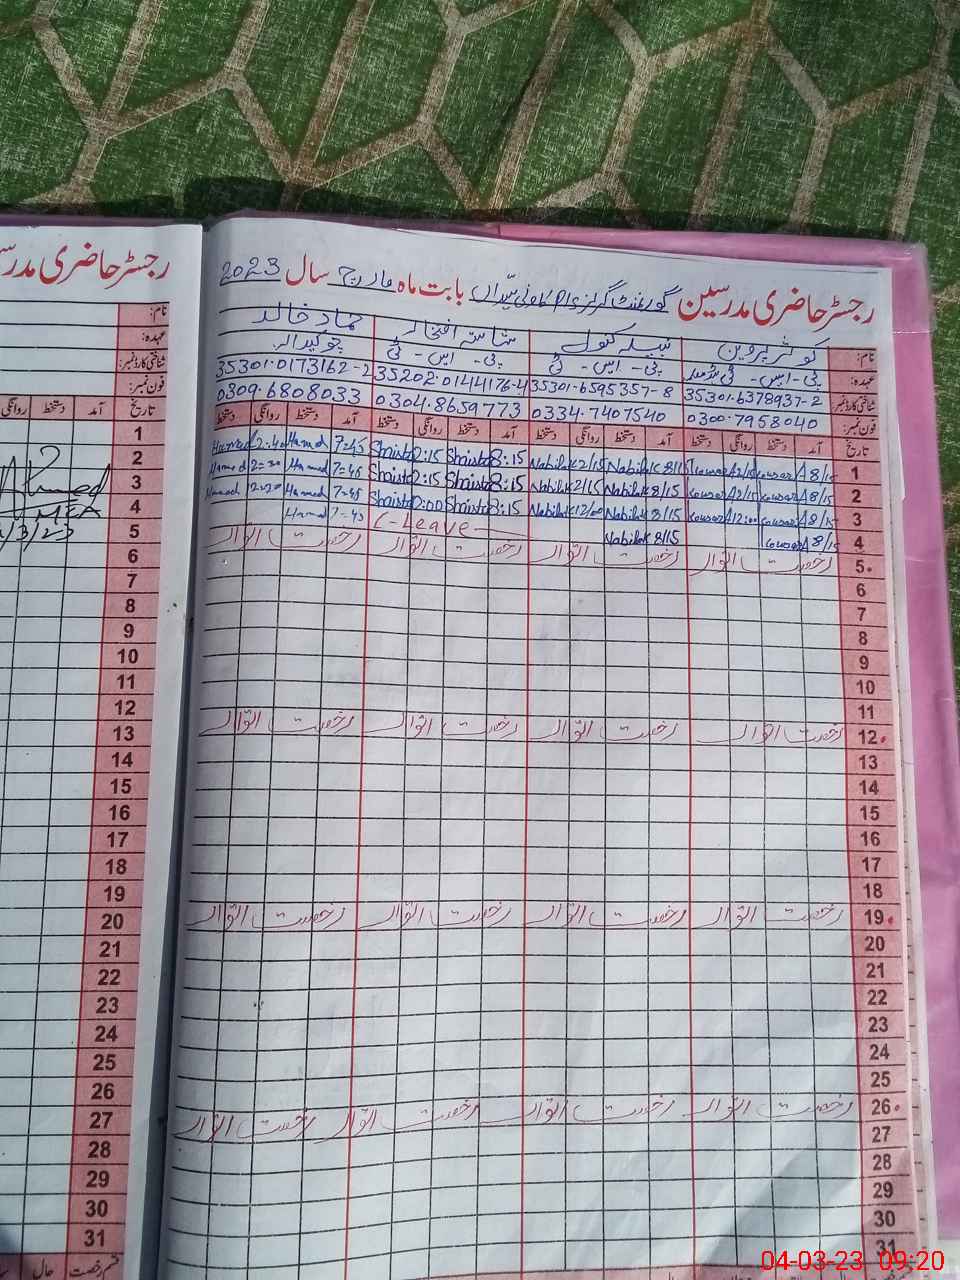 رجسٹر حاضری مدرسین گورنمنٹ گرلز P/S بابت ماہ مارچ سال 2023
نام: کوثر پروین نبیلہ کنول شائستہ افتخار حماد خالد
عہدہ: پی - ایس - ٹی پی - ایس - ٹی پی - ایس - ٹی چوکیدار
شناختی کارڈ نمبر: 35301-6378937-2 35301-6595357-8 35202-0144176-4 35301-0173162-2
فون نمبر: 0300-7958040 0334-7407540 0304-8659773 0309-6808033
تاریخ آمد دستخط روانگی دستخط آمد دستخط روانگی دستخط آمد دستخط روانگی دستخط آمد دستخط روانگی دستخط
1 8/15 Kousar A 2/15 Kousar A 8/15 Nabila K 2/15 Nabila K 8:15 Shaista 2:15 Shaista 7=45 Hamad 2:40 Hamad
2 8/15 Kousar A 2/15 Kousar A 8/15 Nabila K 2/15 Nabila K 8:15 Shaista 2:15 Shaista 7=45 Hamad 2=30 Hamad
3 8/15 Kousar A 12:00 Kousar A 8/15 Nabila K 12/00 Nabila K 8:15 Shaista 12:00 Shaista 7=45 Hamad Hamad
4 8/15 Kousar A 8/15 Nabila K C-Leave 7=45 Hamad
5 رخصت اتوار رخصت اتوار رخصت اتوار رخصت اتوار
6
7
8
9
10
11
12 رخصت اتوار رخصت اتوار رخصت اتوار رخصت اتوار
13
14
15
16
17
18
19 رخصت اتوار رخصت اتوار رخصت اتوار رخصت اتوار
20
21
22
23
24
25
26 رخصت اتوار رخصت اتوار رخصت اتوار رخصت اتوار
27
28
29
30
31
رجسٹر حاضری
نام:
عہدہ:
شناختی کارڈ نمبر:
فون نمبر:
تاریخ آمد دستخط روانگی
1
2
3
4
5
6
7
8
9
10
11
12
13
14
15
16
17
18
19
20
21
22
23
24
25
26
27
28
29
30
31
قسم رخصت حال
04-03-23 09:20